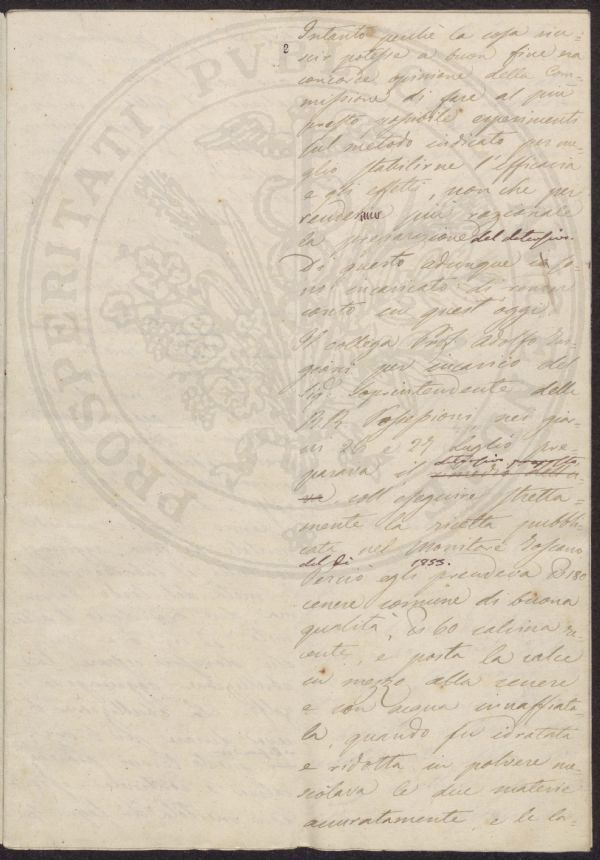 2
Intanto perchè la cosa riu-
scir potesse a buon fine era
concorde opinione della Com-
missione di fare al più
presto possibile esperimenti
sul metodo indicato per me-
glio stabilirne l'efficacia
e gli effetti, non che per
render più razionale
la preparazione del detersivo.
Di questo adunque io so-
no incaricato di render
conto in quest'oggi.
Il collega Prof. Adolfo Tar-
gioni per incarico del
Sig. Soprintendente delle
RR. Possessioni, nei gior-
ni 26 e 27 Luglio pre-
parava il detersivo proposto
coll'eseguire stretta-
mente la ricetta pubbli-
cata nel Monitore Toscano
del dì 1853.
Perciò egli prendeva 180
cenere comune di buona
qualità, 60 calcina re-
cente, e posta la calce
in mezzo alla cenere
e con acqua innaffiata-
la, quando fu idratata
e ridotta in polvere me-
scolava le due materie
accuratamente, e le la-
PROSPERITATI PUB